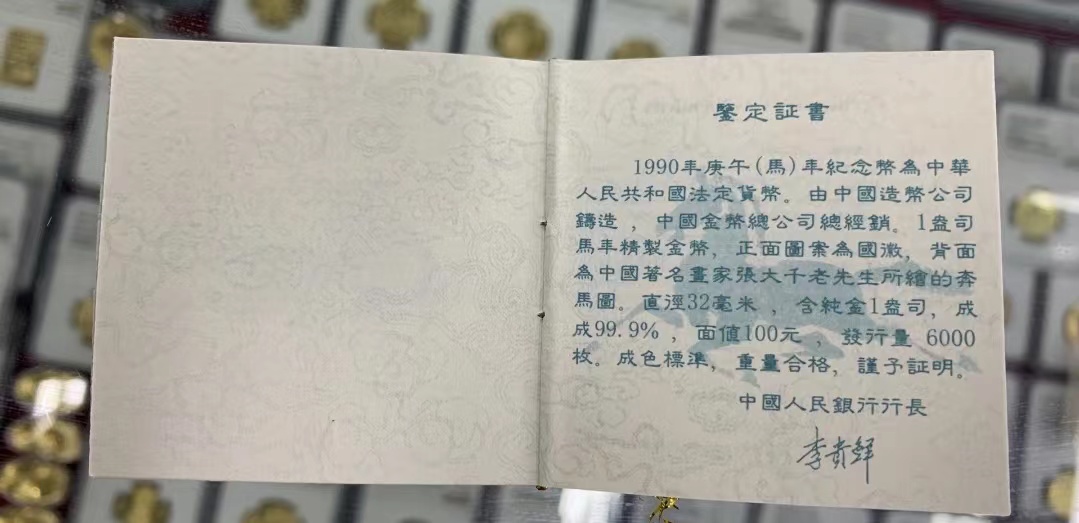 鑒定証書
1990年庚午(馬)年紀念幣為中華
人民共和國法定貨幣。由中國造幣公司
鑄造，中國金幣總公司總經銷。1盎司
馬年精製金幣，正面圖案為國徽，背面
為中國著名畫家張大千老先生所繪的奔
馬圖。直徑32毫米，含純金1盎司，成
成99.9%，面值100元，發行量 6000
枚。成色標準，重量合格，謹予証明。
中國人民銀行行長
李貴鮮